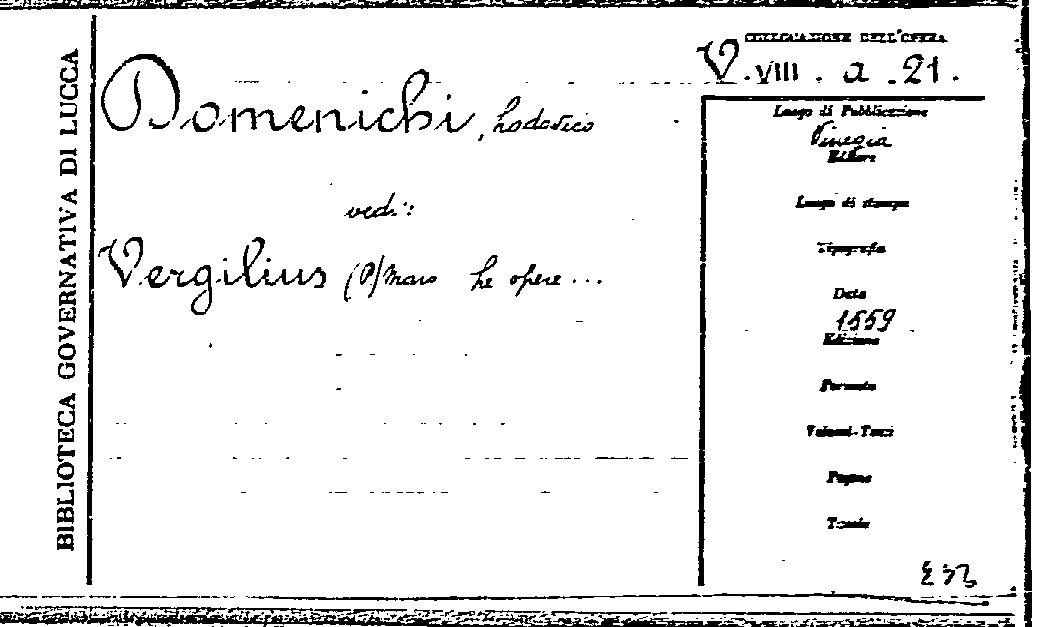 BIBLIOTECA GOVERNATIVA DI LUCCA
COLLOCAZIONE DELL'OPERA
V. VIII. a. 21.
Domenichi, Lodovico
vedi:
Vergilius (P) Maro Le opere...
Luogo di Pubblicazione
Vinegia
Editore
Luogo di stampa
Tipografia
Data
1559
Edizione
Formato
Volumi-Tomi
Pagine
Tavole